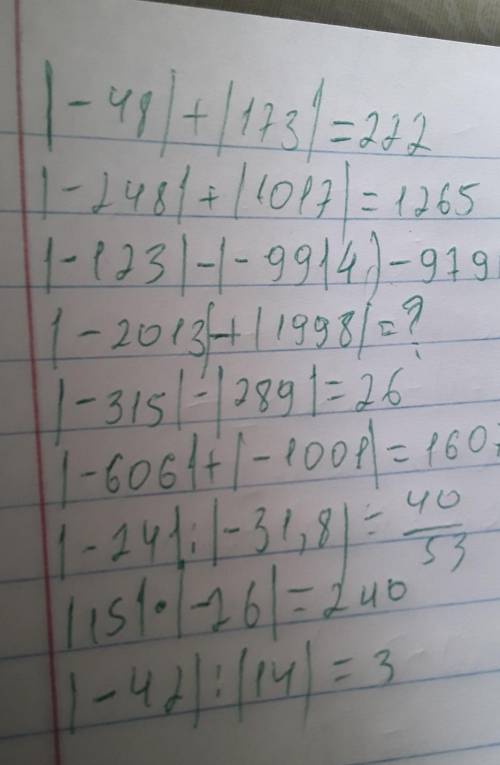 |-49|+|173|=222
|-248|+|1017|=1265
|-123|-|-9914|-979
|-2013|-+|1998|=?
|-315|-|289|=26
|-606|+|-1001|=1607
|-24|:|-31,8|=40/53
|15|•|-16|=240
|-42|:|14|=3